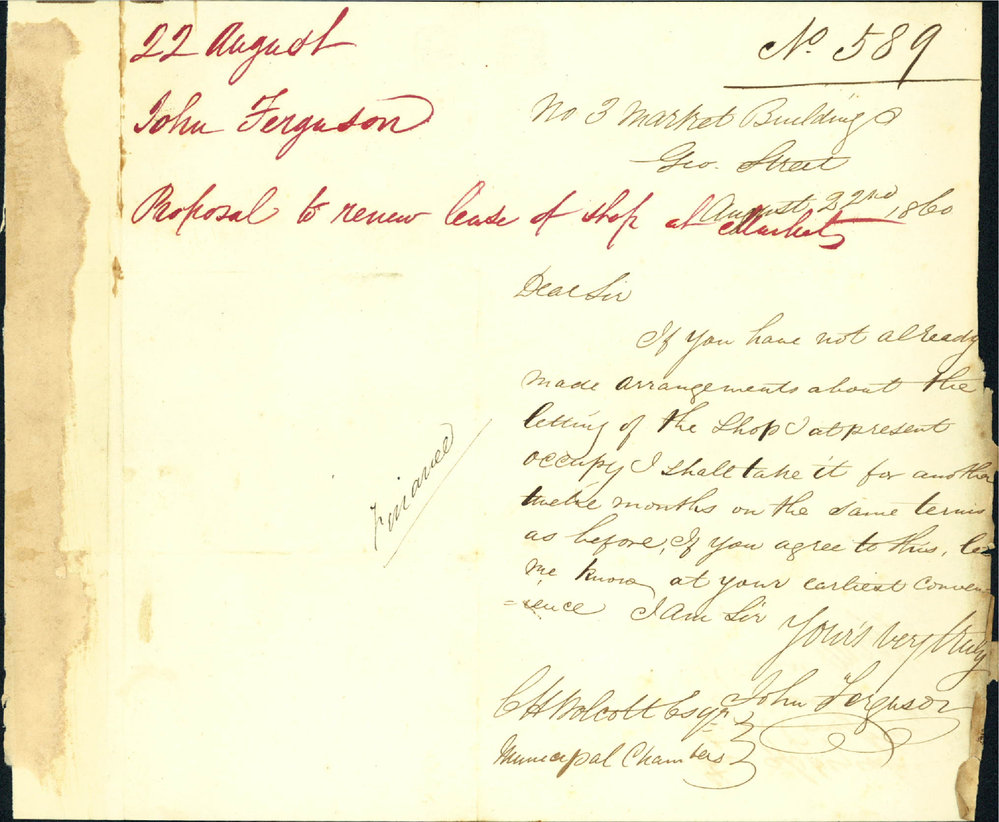 22 August
John Ferguson
Proposal to renew lease of shop at Markets
Finance
No. 589
No 3 Market Buildings
Geo. Street
August 22nd, 1860
Dear Sir
If you have not already
made arrangements about the
letting of the Shop I at present
occupy I shall take it for another
twelve months on the same terms
as before, If you agree to this, let
me know at your earliest conven
=ience I am Sir
Your's very truly
John Ferguson
C H Wolcott Esqr
Municipal Chambers